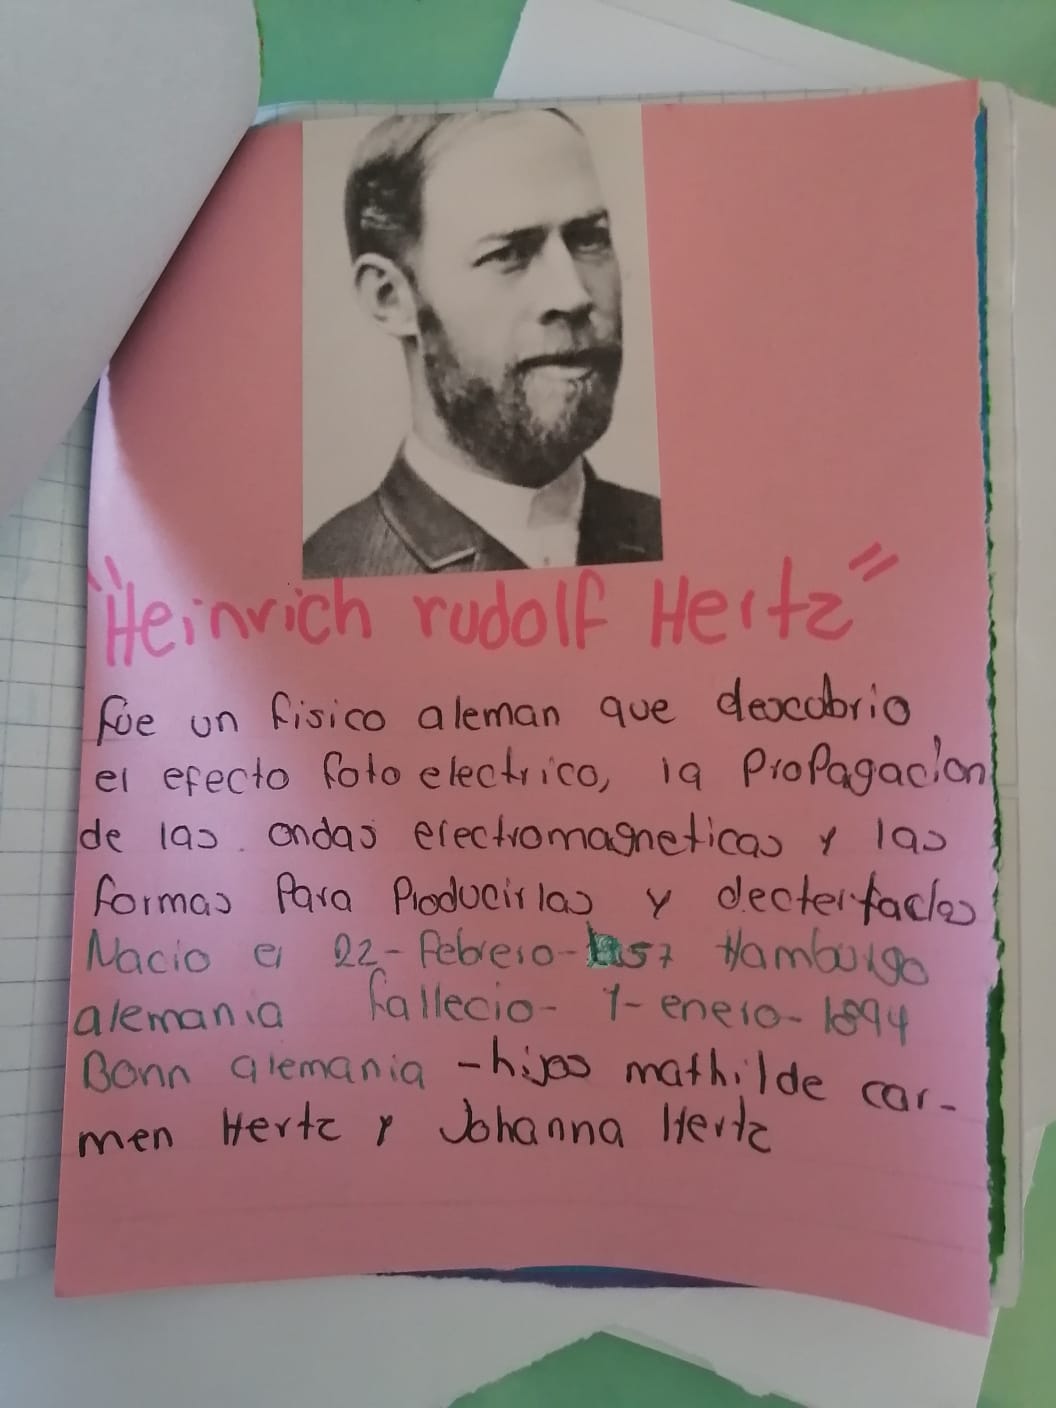 "Heinrich rudolf Hertz"
fue un fisico aleman que descubrio
el efecto foto electrico, la Propagacion
de las ondas electromagneticas y las
formas Para Producirlas y
Nacio el 22-febrero- 57 Hamburgo
alemania fallecio- 1-enero-1894
Bonn alemania -hijos mathilde car-
men Hertz y Johanna Hertz